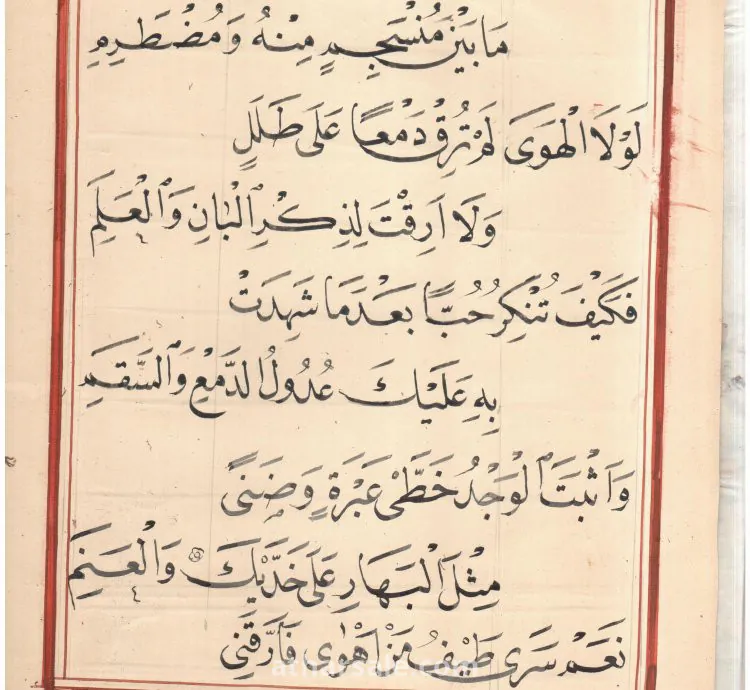 مَا بَيْنَ مُنْسَجِمٍ مِنْهُ وَمُضْطَرِمِ
لَوْلَا الْهَوَى لَمْ تُرِقْ دَمْعًا عَلَى طَلَلٍ
وَلَا اَرِقْتَ لِذِكْرِ الْبَانِ وَالْعَلَمِ
فَكَيْفَ تُنْكِرُ حُبًّا بَعْدَمَا شَهِدَتْ
بِهِ عَلَيْكَ عُدُولُ الدَّمْعِ وَالسَّقَمِ
وَاَثْبَتَ الْوَجْدُ خَطَّىْ عَبْرَةٍ وَضَنىً
مِثْلَ الْبَهَارِ عَلَى خَدَّيْكَ وَالْعَنَمِ
نَعَمْ سَرَى طَيْفُ مَنْ اَهْوٰى فَاَرَّقَنِى
atharsale.com